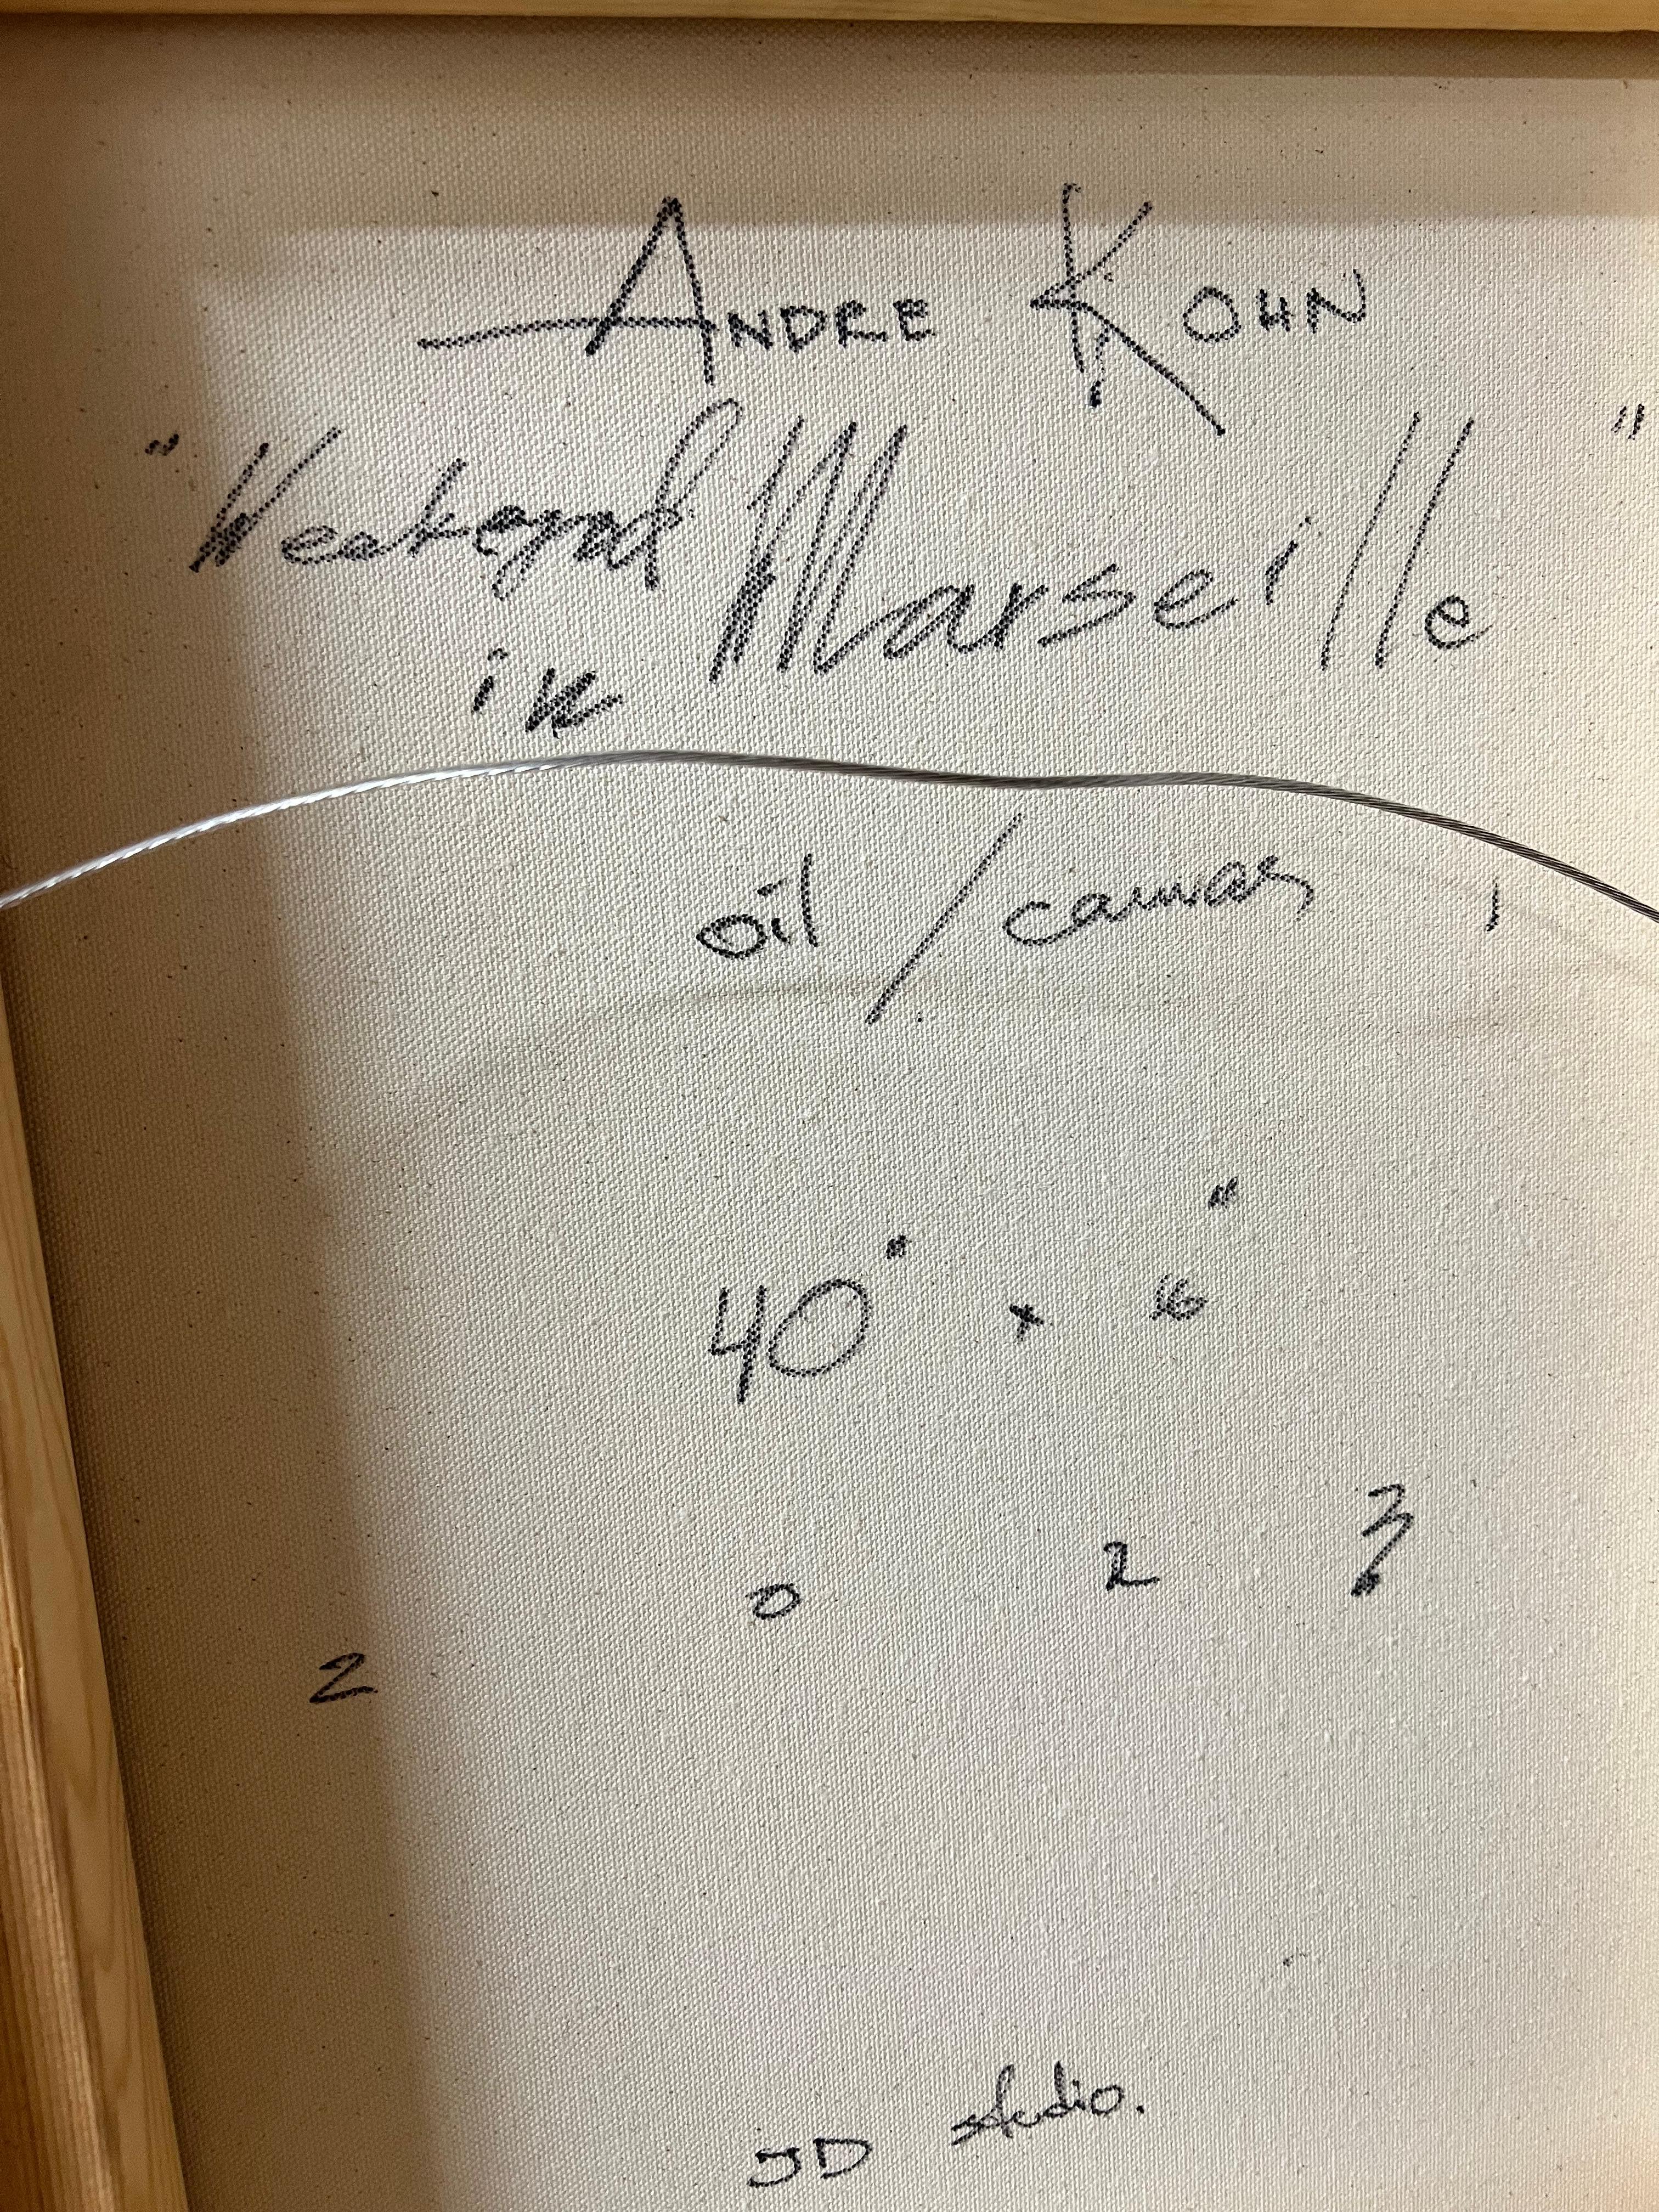 ANDRE KOHN
"Weekend Marseille"
in
oil / canvas
40" x 16"
2 0 2 3
JD studio.